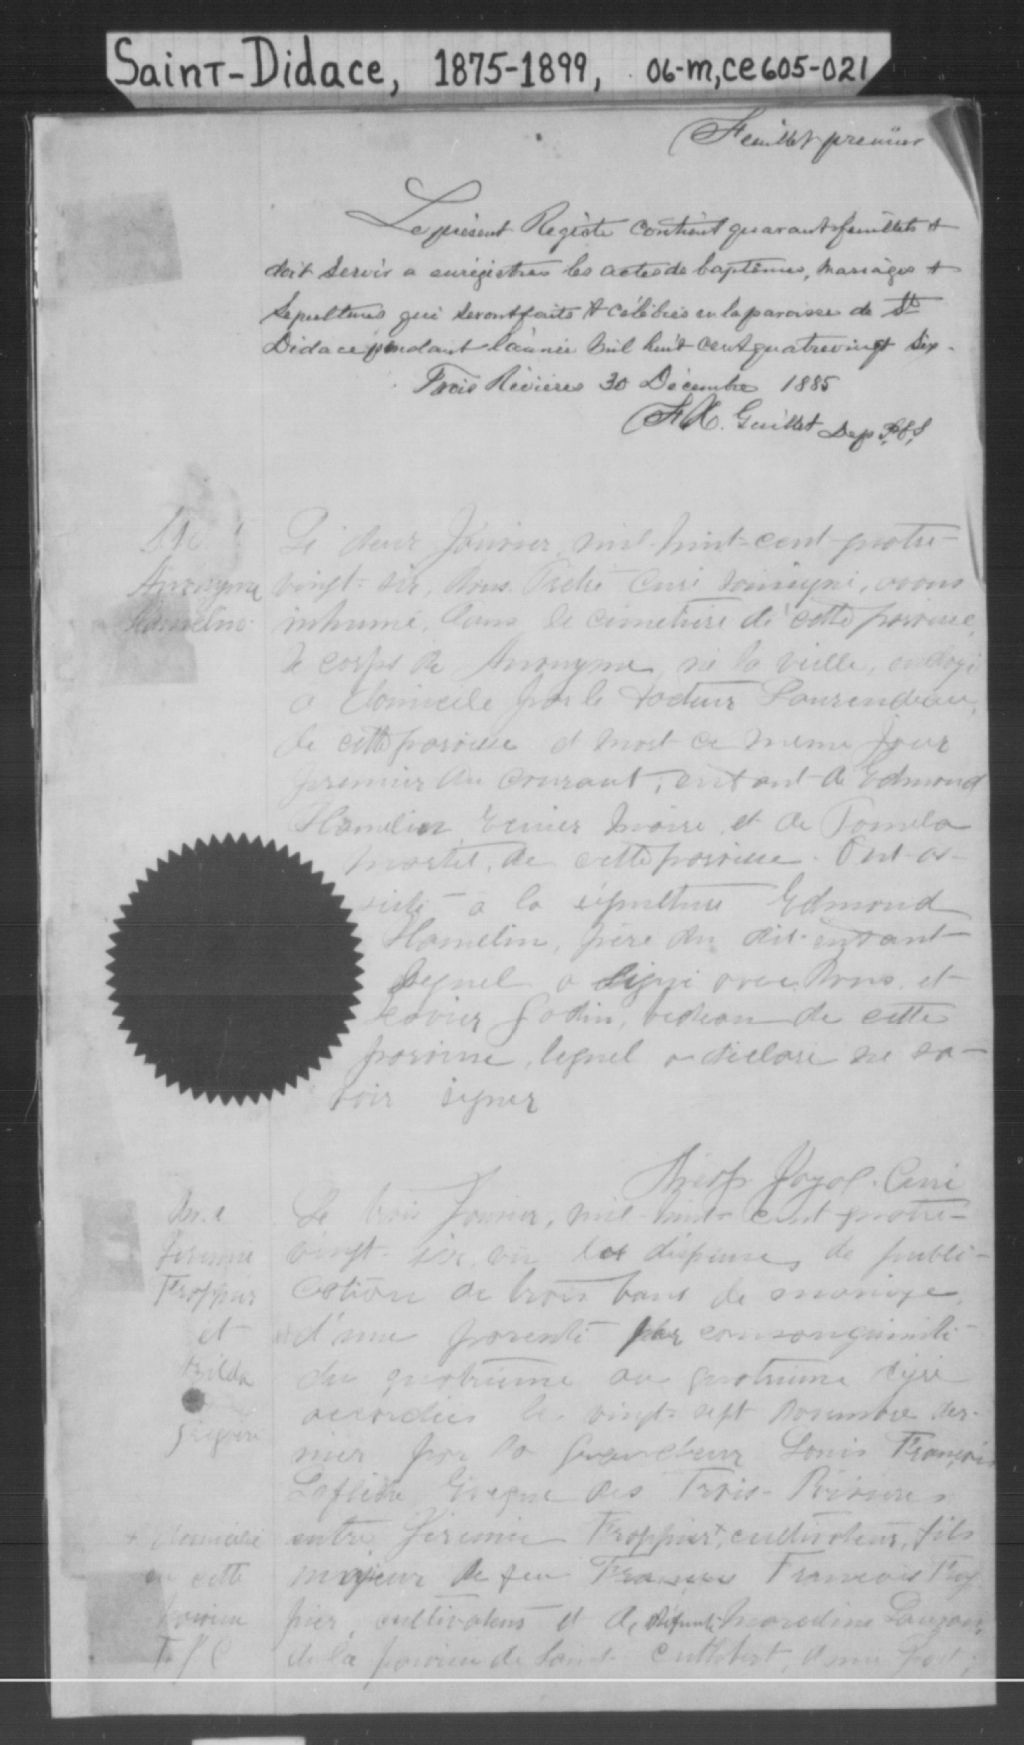 Saint-Didace, 1875-1899, 06-M, CE605-021
Feuillet premier
Le présent Registre contient quarante feuillets &
doit servir a enrégistrer les actes de baptêmes, mariages &
Sepultures qui seront faits & célébrés en la paroisse de St
Didace pendant l'année mil huit cent quatrevingt Six.
Trois Rivières 30 Décembre 1885
F X. Guillet Dep P.C.S.
Anonyme
Hamelin
Le deux Janvier, mil-huit-cent-quatre-
vingt-six, Nous Prêtre Curé soussigné, avons
inhumé, dans le cimetière de cette paroisse,
le corps de Anonyme, né la veille, ondoyé
a domicile par le docteur Laurendeau,
de cette paroisse et mort ce même jour
premier du courant, enfant de Edmond
Hamelin, Ecuier Maire, et de Paméla
de cette paroisse. Ont as-
sisté à la sépulture Edmond
Hamelin, père du dit enfant
lequel a signé avec Nous, et
Xavier Godin, bedeau de cette
paroisse, lequel a déclaré ne sa-
voir signer
Curé
M. 1
Jérémie
Froppier
et
Grégoire
Le trois Janvier, mil-huit-cent-quatre-
vingt-six, vu les dispenses de publi-
cation de trois bans de mariage,
d'une parenté par consanguinité
du quatrième au quatrième dégré
accordées le vingt-sept Novembre der-
nier par Sa Grandeur Louis François
Laflèche Evêque des Trois-Rivières
entre Jérémie Froppier + cultivateur, fils
majeur de feu François Frop-
pier, cultivateur et de défunte Lauzon,
de la paroisse de Saint-Cuthbert, d'une part;
+ domicilié
en cette
paroisse